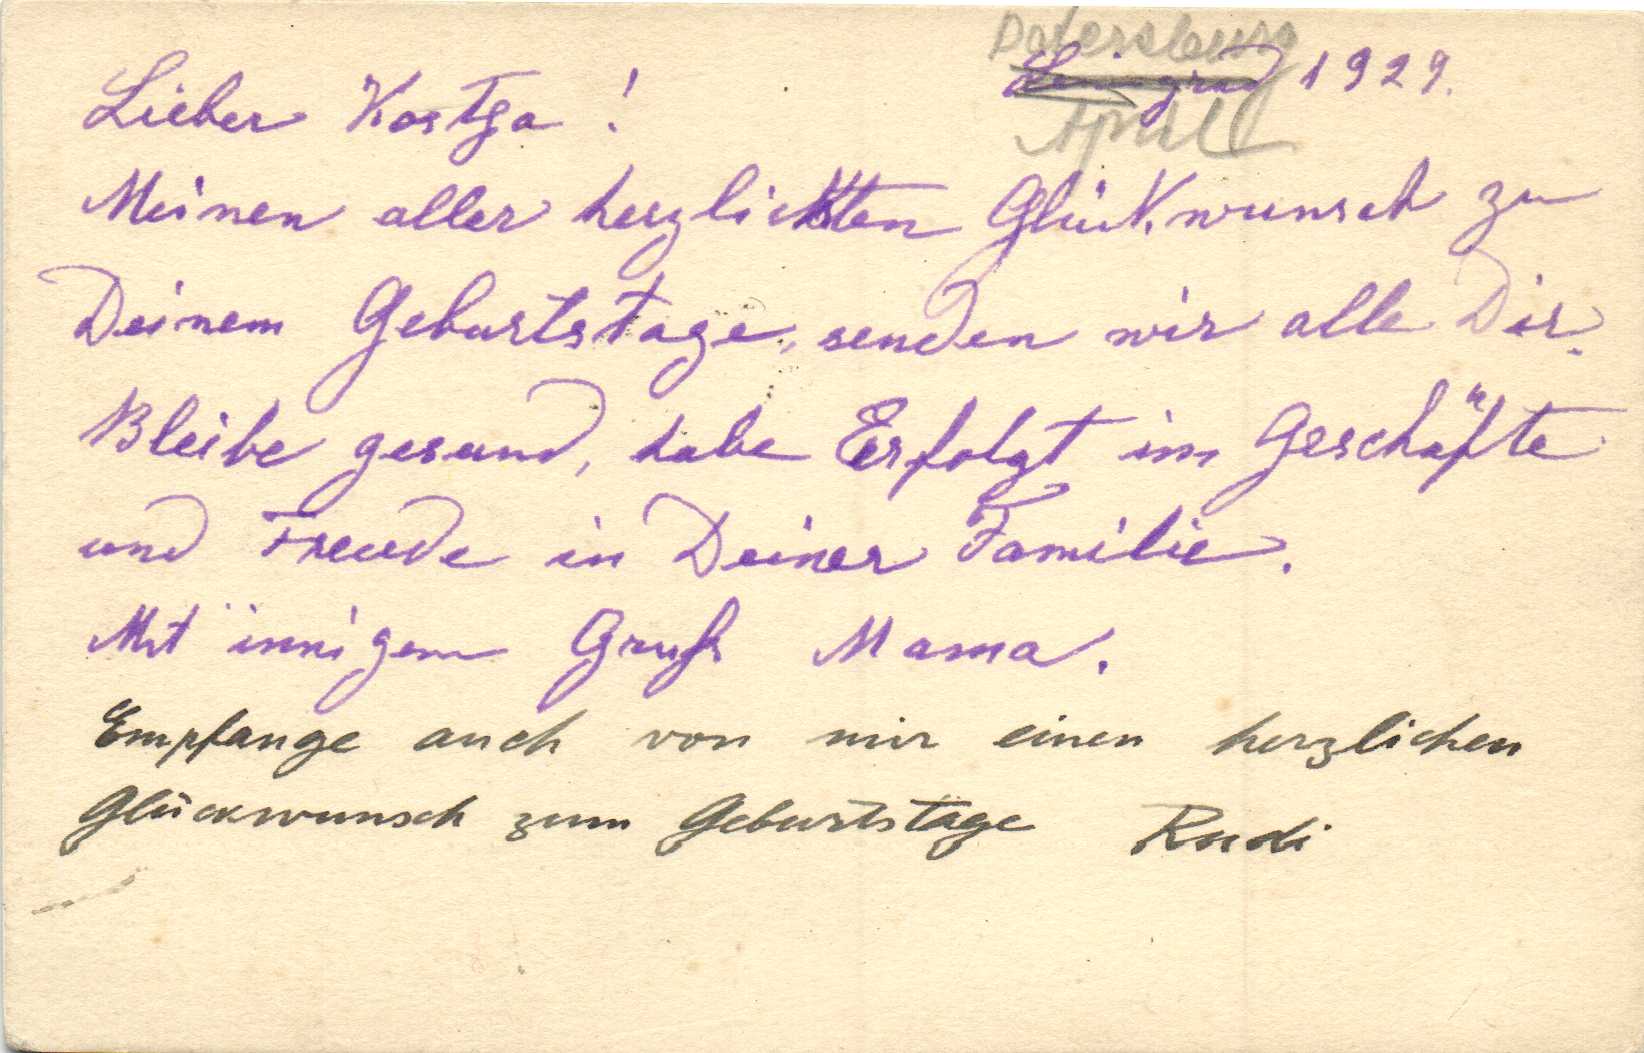 Petersburg
Lieber Kostja! Leningrad 1929.
April
Meinen aller herzlichsten Glückwunsch zu
Deinem Geburtstage, senden wir alle Dir.
Bleibe gesund, habe Erfolgt im Geschäfte
und Freude in Deiner Familie.
Mit innigem Gruß Mama.
Empfange auch von mir einen herzlichen
Glückwunsch zum Geburtstage Rudi